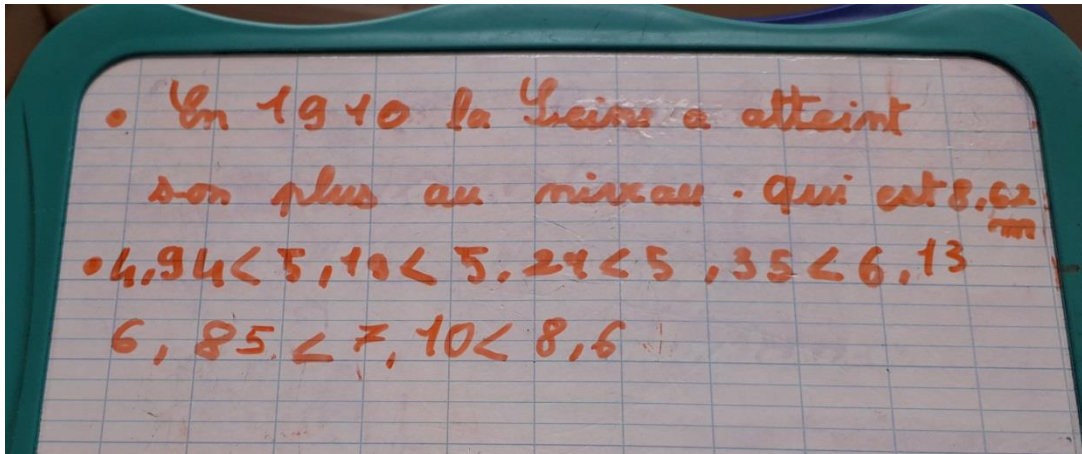 • En 1910 la Seine a atteint
son plus au niveau. Qui est 8,62
m
• 4,94 < 5,10 < 5,24 < 5,35 < 6,13
6,85 < 7,10 < 8,6